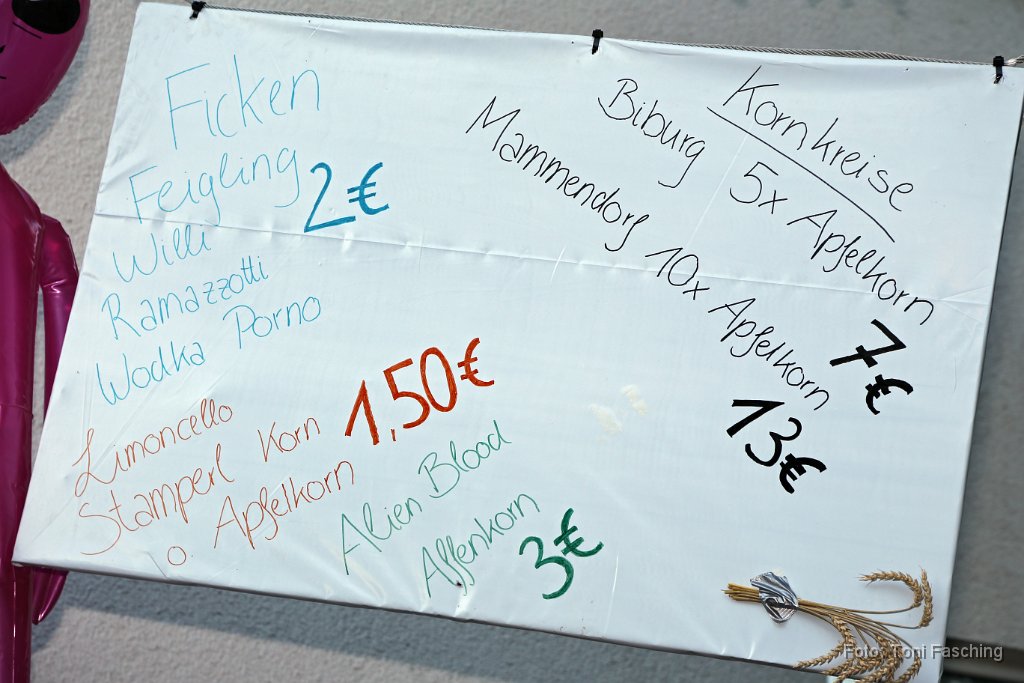 Ficken
Feigling
2€
Willi
Ramazzotti
Wodka Porno
Limoncello
Stamperl Korn
o. Apfelkorn
1,50€
Alien Blood
Affenkorn
3€
Kornkreise
Biburg 5x Apfelkorn
7€
Mammendorf 10x Apfelkorn
13€
Foto: Toni Fasching